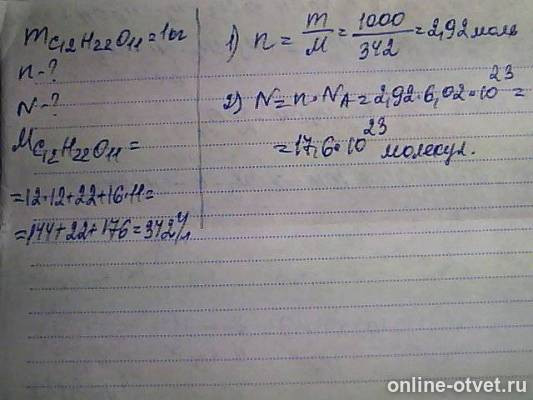 m C12H22O11 = 1кг
n-?
N-?
M C12H22O11 =
=12·12+22+16·11=
=144+22+176=342 г/
1) n = m/M = 1000/342 = 2,92 моль
2) N=n·NA=2,92·6,02·10^23=
=17,6·10^23 молекул.
online-otvet.ru